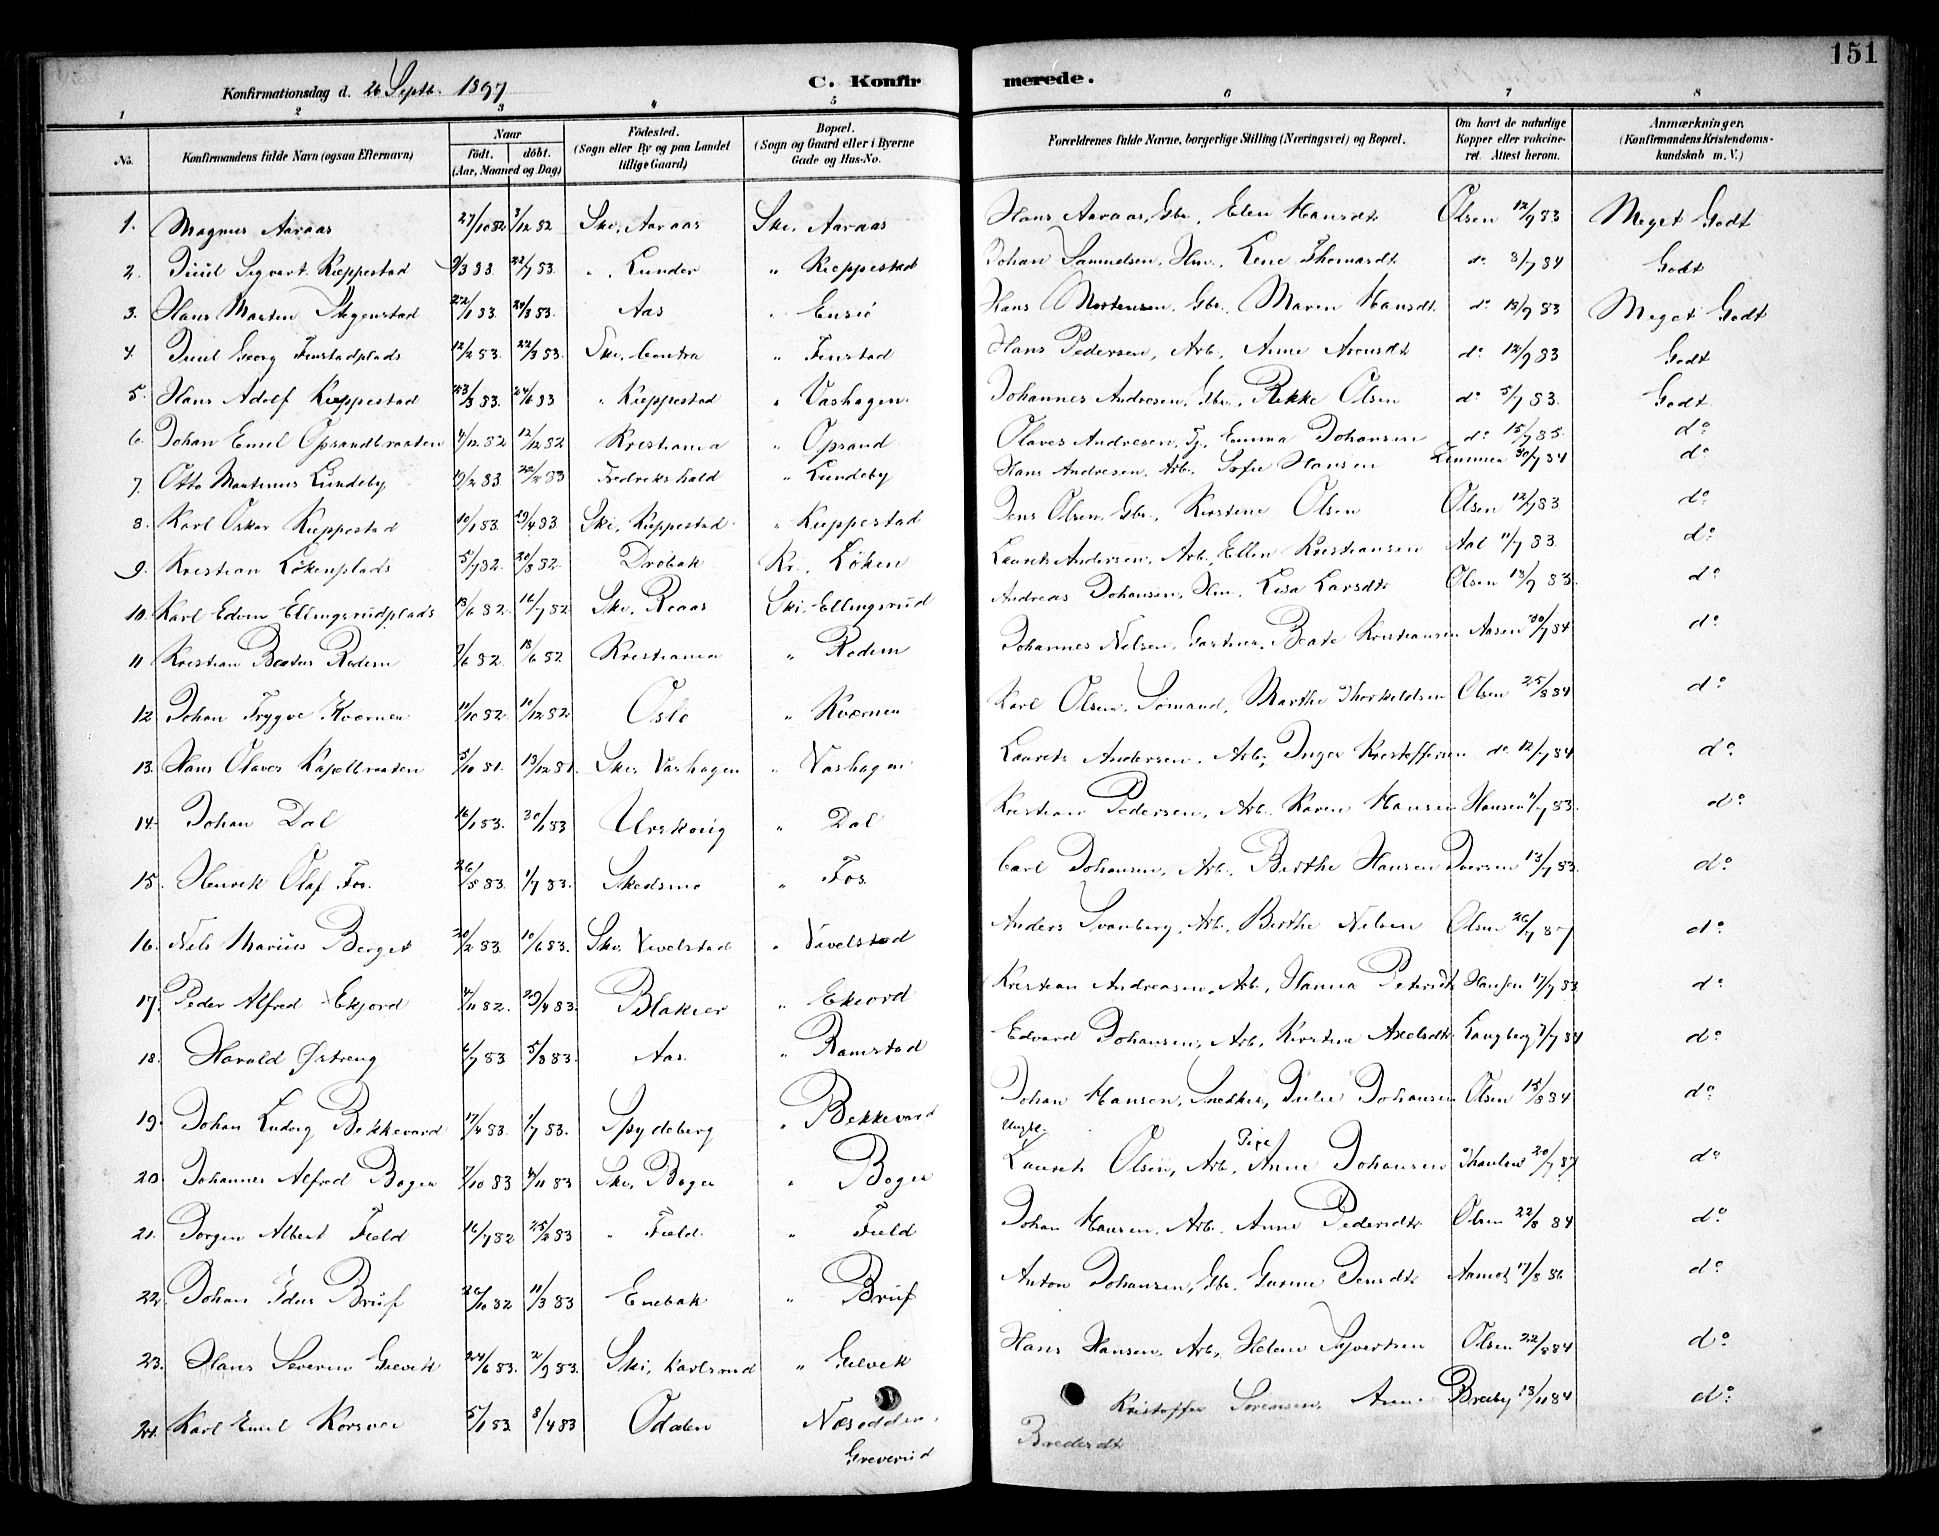 151
Konfirmationsdag d. 26 Septb. 1897 C. Konfirmerede.
1 2 3 4 5 6 7 8
No. Konfirmandens fulde Navn (ogsaa Efternavn) Naar født. døbt. (Aar, Maaned og Dag) Fødested. (Sogn eller By og paa Landet tillige Gaard) Bopæl. (Sogn og Gaard eller i Byerne Gade og Hus-No. Forældrenes fulde Navne, borgerlige Stilling (Næringsvei) og Bopæl. Om havt de naturlige Kopper eller vakcineret. Attest herom. Anmærkninger, (Konfirmandens Kristendomskundskab m. V.)
1. Magnus Aaraas 27/10 82 3/12 82 Ski, Aaraas Ski, Aaraas Hans Aaraas, Gbr., Elen Hansdt Olsen 12/9 83 Meget Godt
2. Juul Sigvart Kieppestad 9/3 83 22/7 83. " Lunder " Kieppestad Johan Samuelsen, Hm., Lene Thomasdt do 3/7 84 Godt
3. Hans Martin Stegenstad 22/1 83 24/3 83. Aas " Ensiø Hans Mortensen, Gbr., Maren Hansdt. do 13/9 83 Meget Godt
4. Juul Georg Finstadplads 12/2 83. 22/3 83. Ski, Contra " Finstad Hans Pedersen, Arb., Anne Arensdt do 12/9 83 Godt
5. Hans Adolf Kieppestad 23/3 83. 24/6 83 " Kieppestad " Vashagen. Johannes Andresen, Gbr., Rikke Olsen do 5/7 83. Godt
6. Johan Emil Opsandbraaten 4/12 82 12/12 82 Kristiania " Opsand Olaves Andresen, Tj. Emma Johansen do 15/7 85. do
7. Otto Martinus Lundeby 19/2 83 22/2 83 Fredrikshald " Lundeby Hans Andresen, Arb. Sofie Hansen 30/7 84 do
8. Karl Oskar Kieppestad 10/1 83 29/4 83 Ski, Kieppestad " Kieppestad Jens Olsen, Gbr., Kirstine Olsen Olsen 12/7 83 do
9. Kristian Løkenplads 5/7 82. 20/8 82. Drøbak Kr., Løken Laurits Andersen, Arb., Ellen Kristiansen Aal 11/7 83. do
10. Karl Edvin Ellingsrudplads 13/6 82. 16/7 82 Ski, Roaas Ski, Ellingsrud Andreas Johansen, Hm., Lisa Larsdtr Olsen 13/9 83. do
11 Kristian Beatus Rodem 7/6 82. 18/6 82 Kristiania " Rodem Johannes Nilsen, Gartner, Beate Kristiansen Aasen 30/7 84 do
12. Johan Trygve Kværnen 11/10 82 10/12 82 Oslo " Kværnen Karl Olsen, Sømand, Marthe Thorkeldsen Olsen 25/8 84 do
13. Hans Olaves Kapelbraaten 5/10 81. 13/12 81. Ski, Vashagen " Vashagen Laurits Andersen, Arb., Inger Kristoffersen do 12/7 84 do
14. Johan Dal 16/1 83. 20/1 83 Urskoug " Dal Kristian Pedersen, Arb., Karen Hansen Hansen 11/7 83. do
15. Henrik Olaf Fos. 26/5 83. 1/7 83. Skedsmo " Fos. Carl Johansen, Arb., Birthe Hansen Iversen 13/7 83. do
16. Nils Marius Berget 20/2 83. 10/6 83. Ski, Vevelstad " Vevelstad Anders Svanberg, Arb., Birthe Nilsen Olsen 26/7 87 do
17. Peder Alfred Ekjord 4/11 82. 29/4 83. Blakier " Ekeord Kristian Andreasen, Arb., Hanna Petersdt Hansen 17/7 83 do
18. Harald Østreng 6/7 83 5/8 83. Aas. " Ramstad Edvard Johansen, Arb., Kirstine Axelsdtr Langberg 7/7 84 do
19. Johan Ludvig Bekkevard 17/4 83. 1/7 83. Spydeberg " Bekkevard Johan Hansen, Snedker, Julie Johansen Olsen 15/8 84 do
20. Johannes Alfred Boger 7/10 83 4/11 83 Ski, Boger " Boger Ungk. Laurits Olsen, Arb., Pige Anne Johansen Thaulow 20/7 87 do
21. Jørgen Albert Field 16/7 82 25/2 83 " Field. " Field Johan Hansen, Arb., Anne Pedersdt. Olsen 22/8 84 do
22. Johan Idus Bruf 26/10 82 11/3 83 Enebak " Bruf Anton Johansen, Gbr. Gusine Jensdtr Aamot 17/8 86 do
23. Hans Severin Gievik 24/6 83. 2/9 83. Ski, Karlsrud " Gievik Hans Hansen, Arb., Helene Syvertsen Olsen 22/8 84 do
24. Karl Emil Korsvei 5/1 83 8/4 83 Odalen Næsodden, Greverud Kristoffer Sørensen, Anne Bredesdt Breeby 13/11 84 do